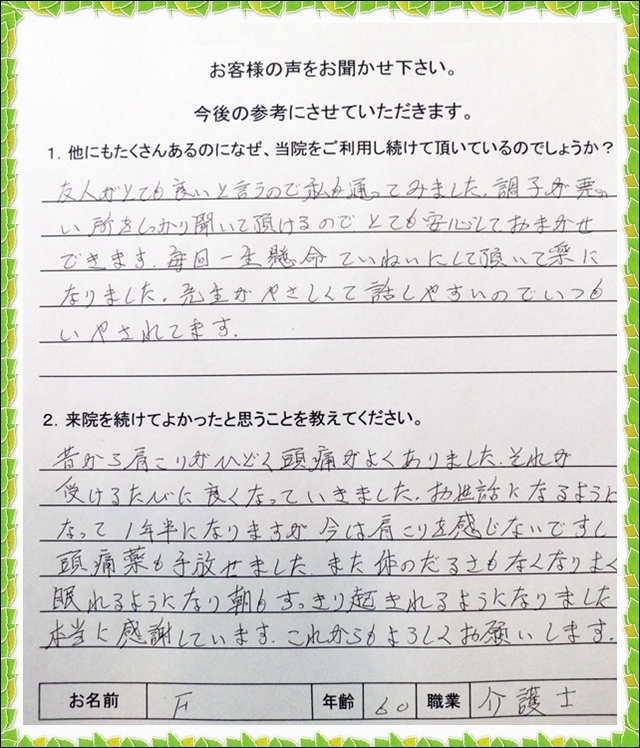 お客様の声をお聞かせ下さい。
今後の参考にさせていただきます。
1. 他にもたくさんあるのになぜ、当院をご利用し続けて頂いているのでしょうか？
友人がとても良いと言うので私も通ってみました。調子が悪
い所をしっかり聞いて頂けるのでとても安心しておまかせ
できます。毎回一生懸命ていねいにして頂いて楽に
なりました。先生がやさしくて話しやすいのでいつも
いやされてます。
2. 来院を続けてよかったと思うことを教えてください。
昔から肩こりがひどく頭痛がよくありました。それが
受けるたびに良くなっていきました。お世話になるように
なって1年半になりますが今は肩こりを感じないですし
頭痛薬も手放せました。また体のだるさもなくなりよく
眠れるようになり朝もすっきり起きれるようになりました
本当に感謝しています。これからもよろしくお願いします。
お名前 F 年齢 60 職業 介護士